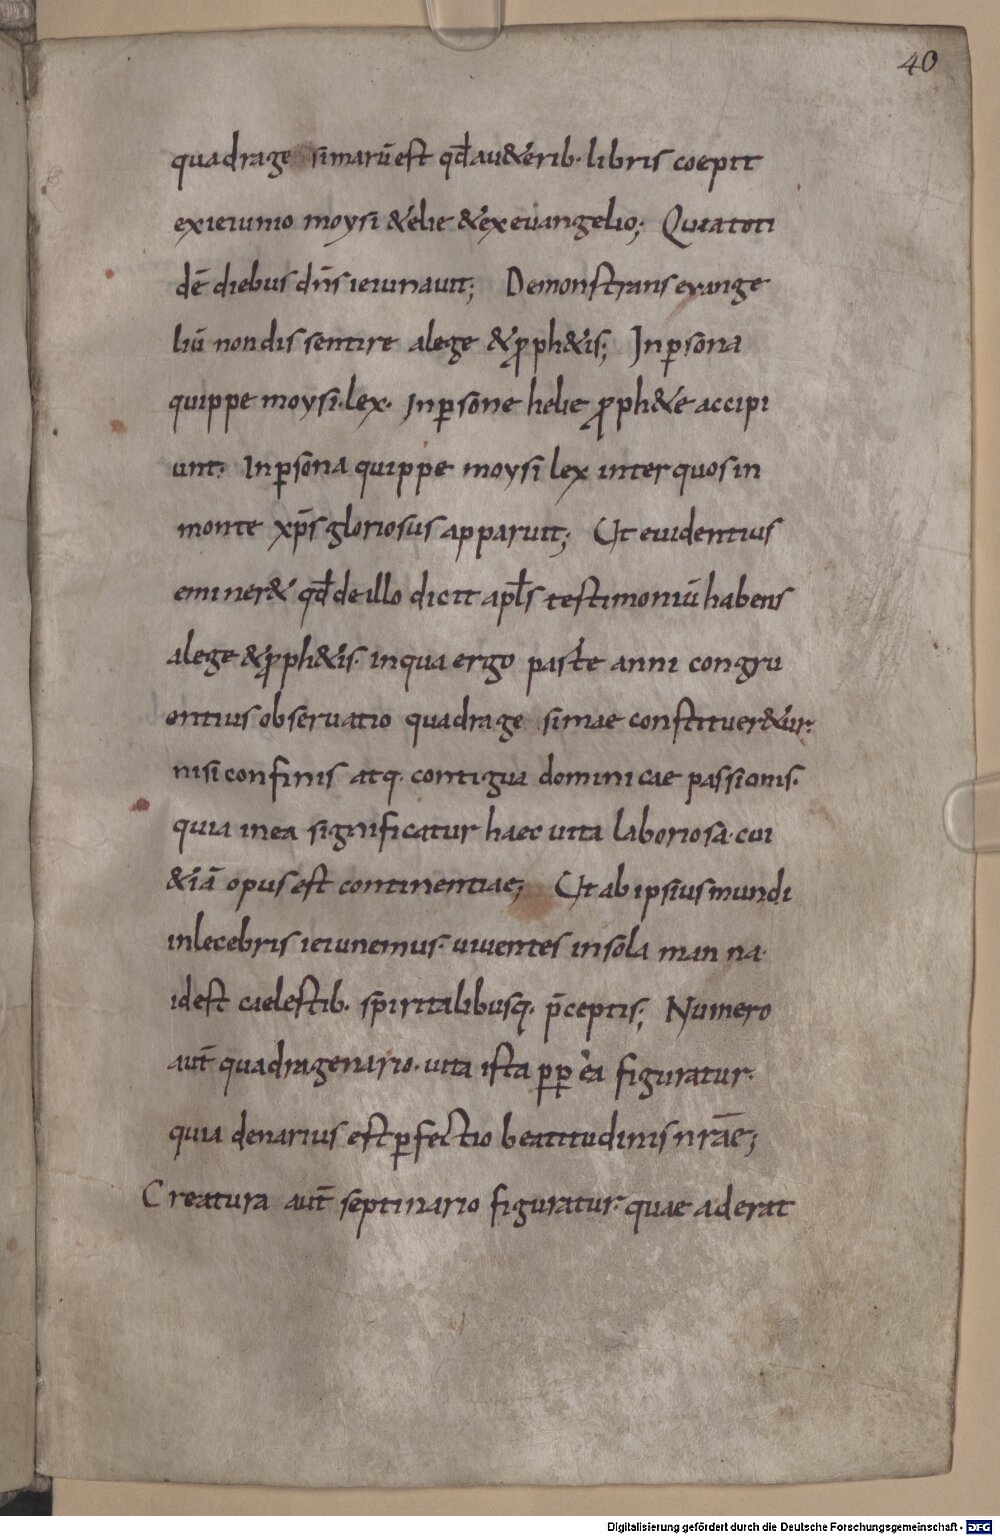 40
quadrage simarū est qđ au&erib· libris coepit
ex ieiunio moysi &elie &ex euangelio; Quia toti
dē diebus dn̄s ieiunauit; Demonstrans euange
liū non dissentire a lege &ꝓph&is; In ꝑsona
quippe moysi· lex· In ꝑsone helie ꝓph&e accipi
unt; In ꝑsona quippe moysi lex inter quos in
monte xp̄s gloriosus apparuit; Ut euidentius
eminer& qđ de illo dicit apl̄s testimoniū habens
a lege &ꝓph&is· in qua ergo parte anni congru
entius obseruatio quadrage simae constituer&ur·
nisi confinis atq· contigua dominicae passionis·
quia in ea significatur haec uita laboriosa· cui
&iā opus est continentiae; Ut ab ipsius mundi
inlecebris ieiunemus· uiuentes in sola man na·
idest caelestib· sp̄iritalibusq· p̄ceptis; Numero
aut̄ quadragenario· uita ista ꝓꝑ ea figuratur·
quia denarius est ꝑfectio beatitudinis nr̄ae;
Creatura aut̄ septinario figuratur· quae aderat
Digitalisierung gefördert durch die Deutsche Forschungsgemeinschaft - DFG